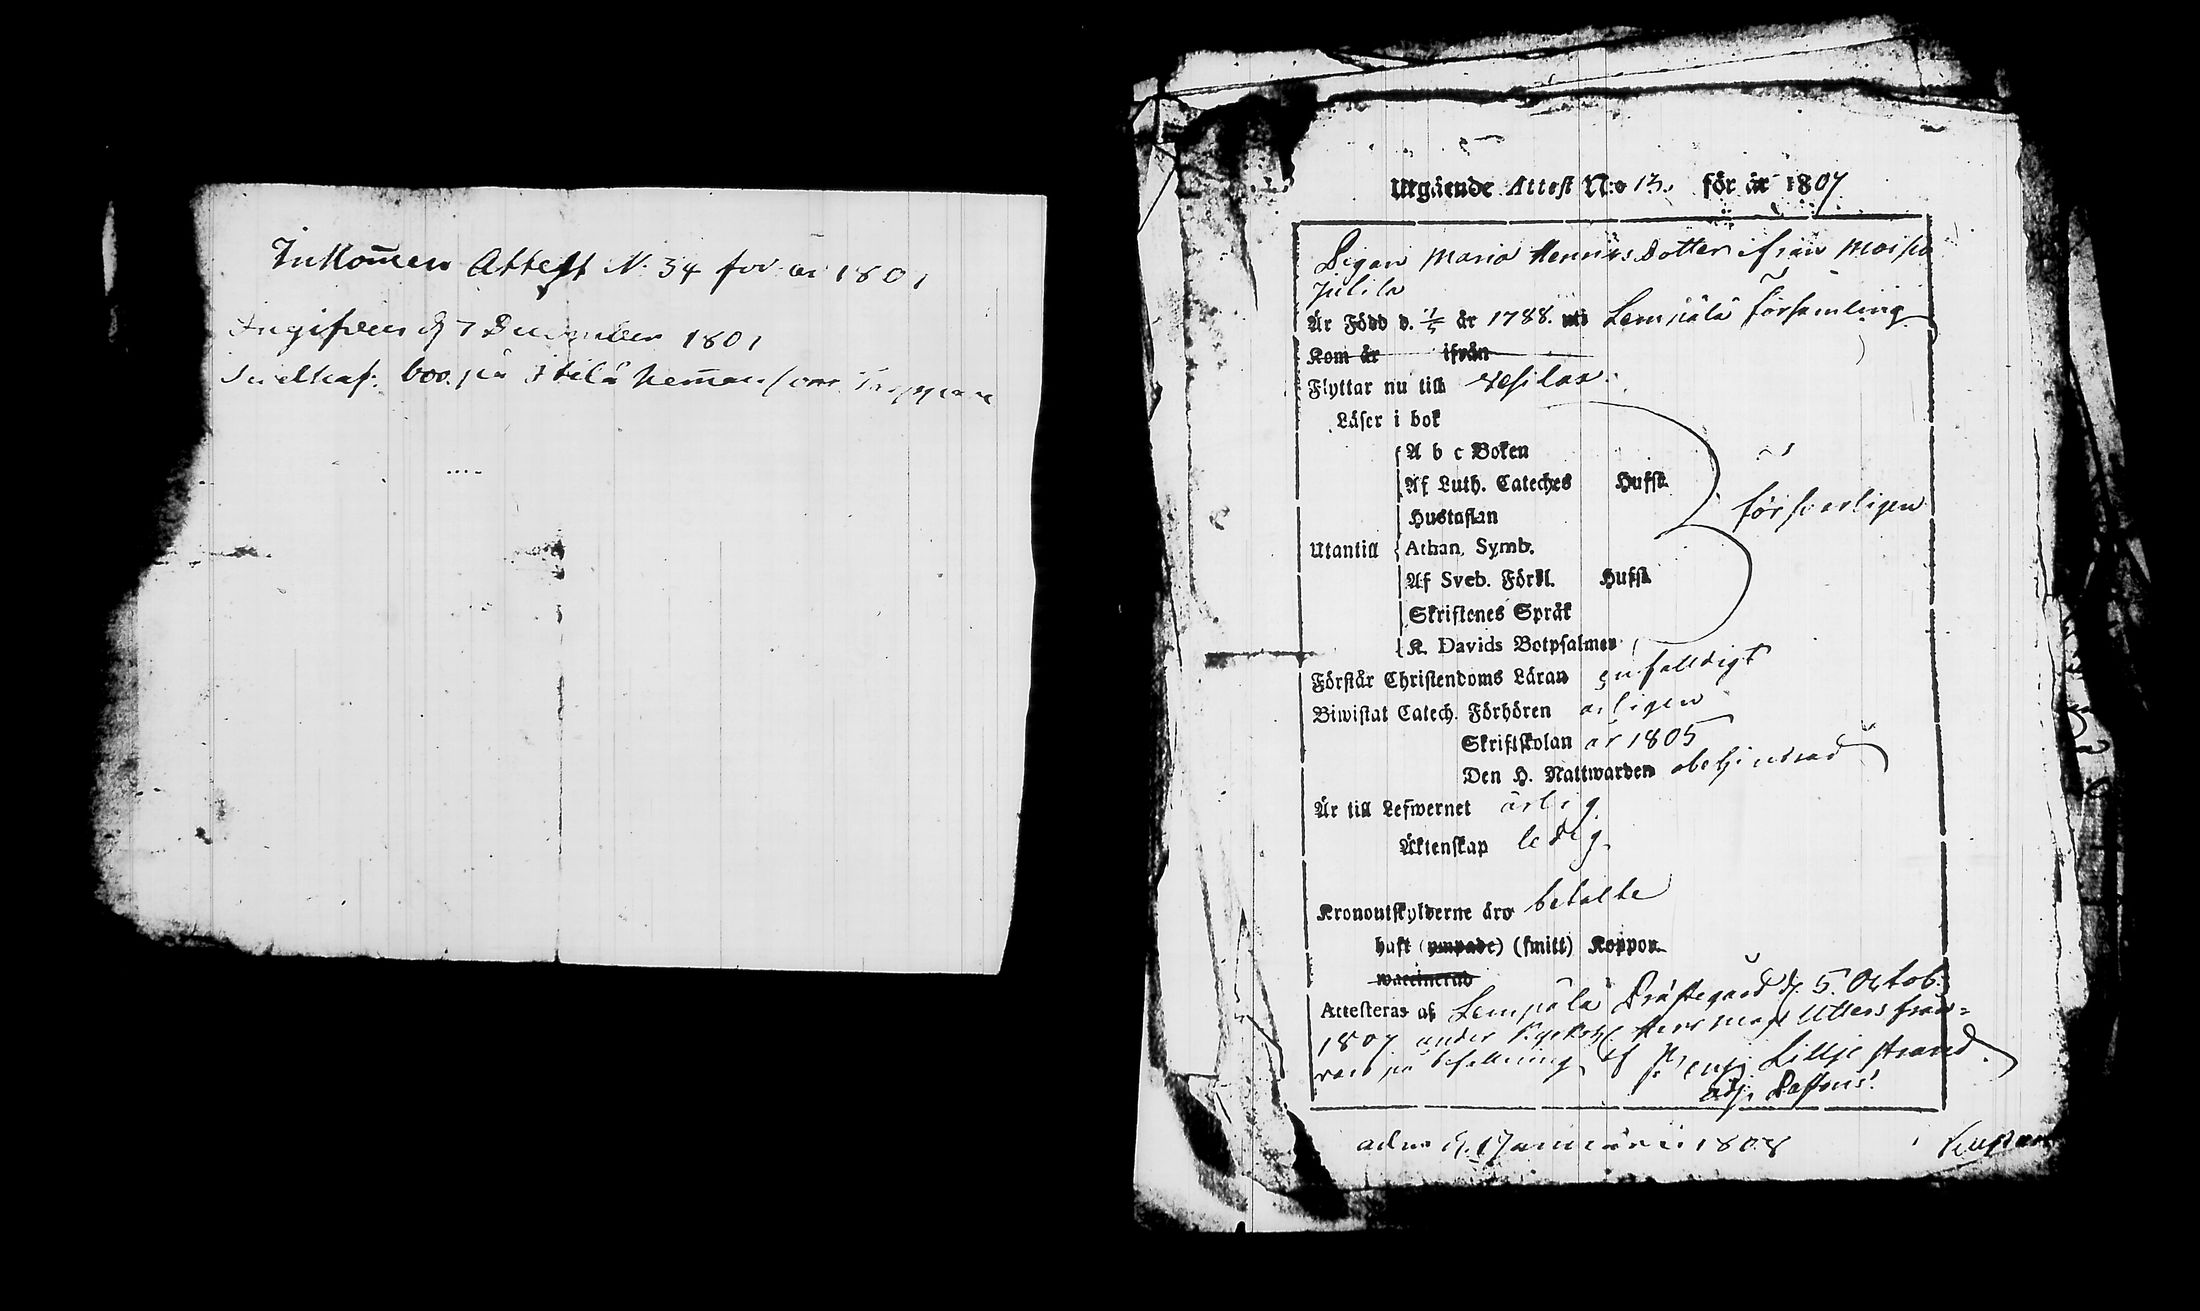 Inkom̄en Attest N. 34 för år 1801
Ingifven d. 7 December 1801
boo. på Itilä Hem̄an som
Utgående Attest N:o 13. för år 1807
Pigan Maria Henrics Dotter ifrån Moisio
Jutila
Är Född d. 1/5 år 1788. uti Lempälä Församling
Kom år ifrån
Flyttar nu till Vesilax.
Läser i bok
A b c Boken
Af Luth. Cateches Hufst.
Hustaflan
försvarligen
Utantill Athan. Symb.
Af Sveb. Förkl. Hufst.
Skriftenes Språk
K. Davids Botpsalmer
Förstår Christendoms Läran enfalldigt
Biwistat Catech. Förhören årligen
Skriftskolan år 1805
Den H. Nattwarden obehindrad
Är till Lefwernet ärlig
Äktenskap ledig.
Kronoutskylderne äro betalte
haft (ympade) (smitt) Koppor.
waccinerad
Attesteras af Lempälä Prästegård d. 5. Octob.
1807 under Kyrkoh. Herr Mag. Utters från-
varo på befallning af Lilljestrand.
adj. Pastoris.
d. Januarii 1808